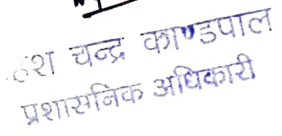 चन्द्र काण्डपाल
प्रशासनिक अधिकारी